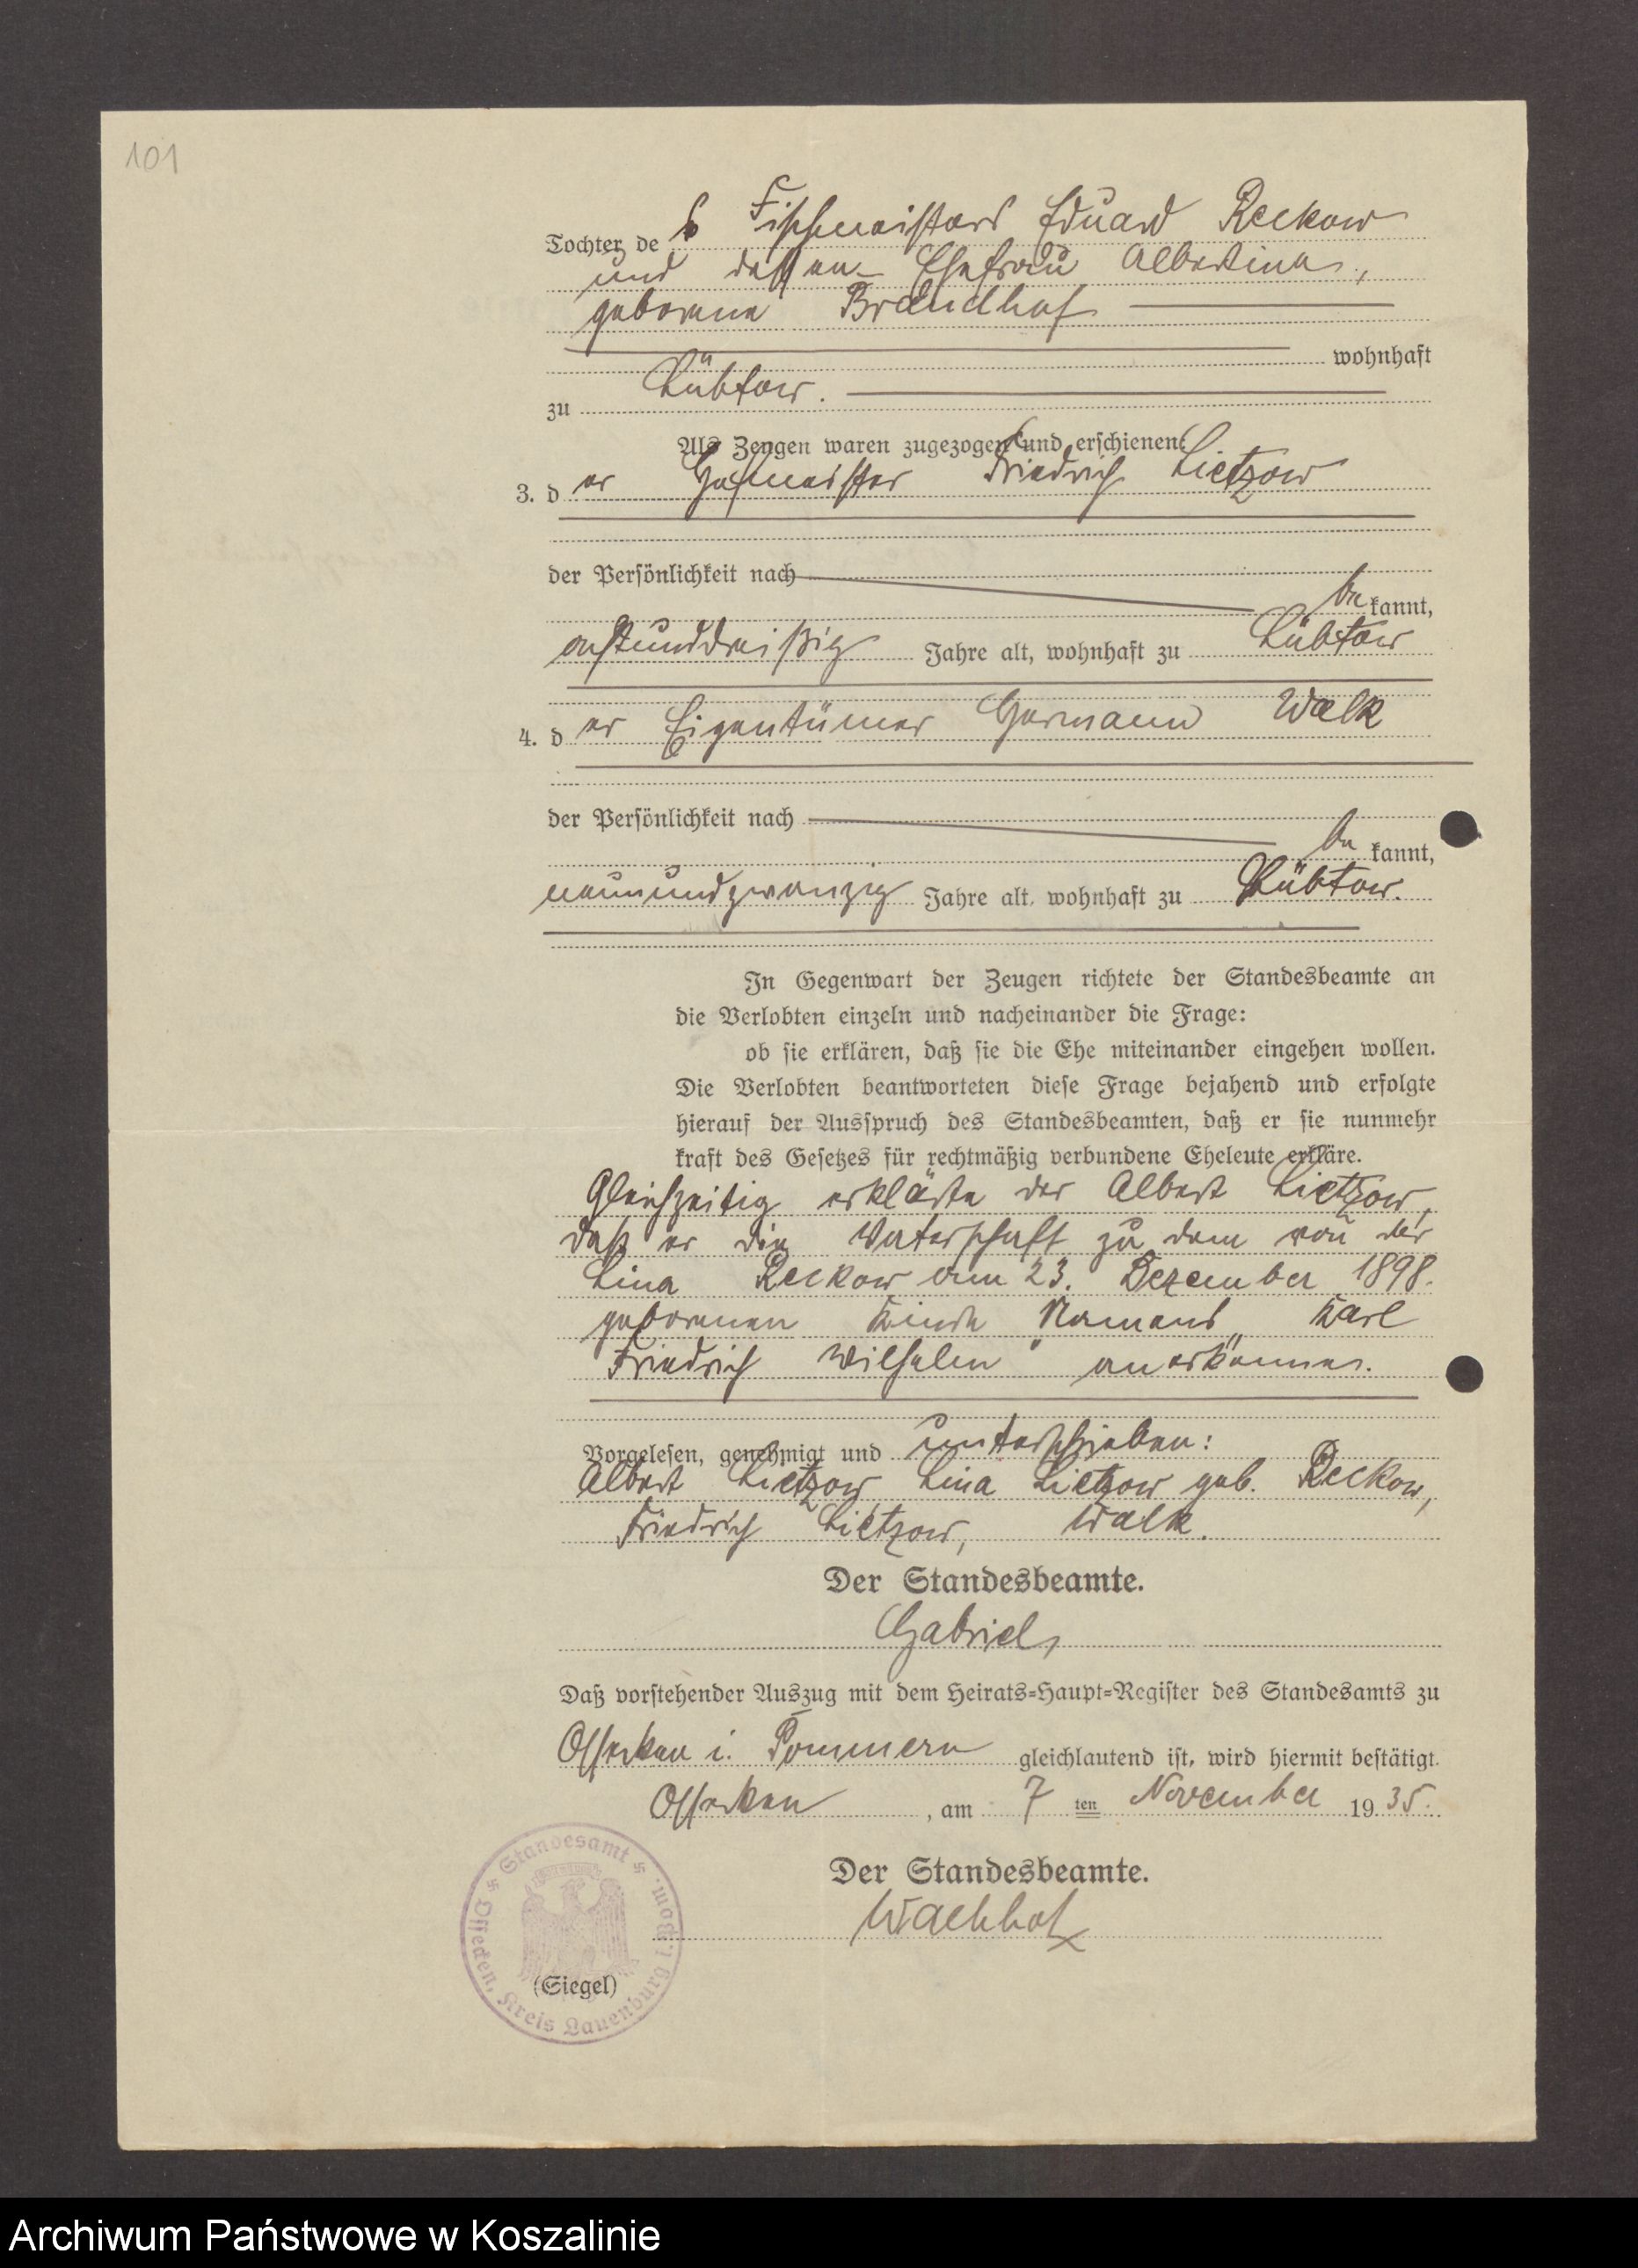 101
Tochter des Fischmeisters Eduard Reckow
und dessen Ehefrau Albertine,
geborene Brandhof
wohnhaft
zu Lübtow.
Als Zeugen waren zugezogen und erschienen:
3. der Hofmeister Friedrich Lietzow
der Persönlichkeit nach
be kannt,
achtunddreißig Jahre alt, wohnhaft zu Lübtow
4. der Eigentümer Hermann Walk
der Persönlichkeit nach
be kannt,
neunundzwanzig Jahre alt, wohnhaft zu Lübtow.
In Gegenwart der Zeugen richtete der Standesbeamte an
die Verlobten einzeln und nacheinander die Frage:
ob sie erklären, daß sie die Ehe miteinander eingehen wollen.
Die Verlobten beantworteten diese Frage bejahend und erfolgte
hierauf der Ausspruch des Standesbeamten, daß er sie nunmehr
kraft des Gesetzes für rechtmäßig verbundene Eheleute erkläre.
Gleichzeitig erklärte der Albert Lietzow,
daß er die Vaterschaft zu dem von der
Lina Reckow am 23. Dezember 1898.
geborenen Kinde Namens „Karl
Friedrich Wilhelm" anerkenne.
Vorgelesen, genehmigt und unterschrieben:
Albert Lietzow, Lina Lietzow geb. Reckow,
Friedrich Lietzow, Walk.
Der Standesbeamte.
Gabriel,
Daß vorstehender Auszug mit dem Heirats-Haupt-Register des Standesamts zu
Ossecken i. Pommern gleichlautend ist, wird hiermit bestätigt.
Ossecken, am 7 ten November 1935.
Der Standesbeamte.
Wachholz
(Siegel)
Standesamt Ossecken, Kreis Lauenburg i. Pom.
Archiwum Państwowe w Koszalinie